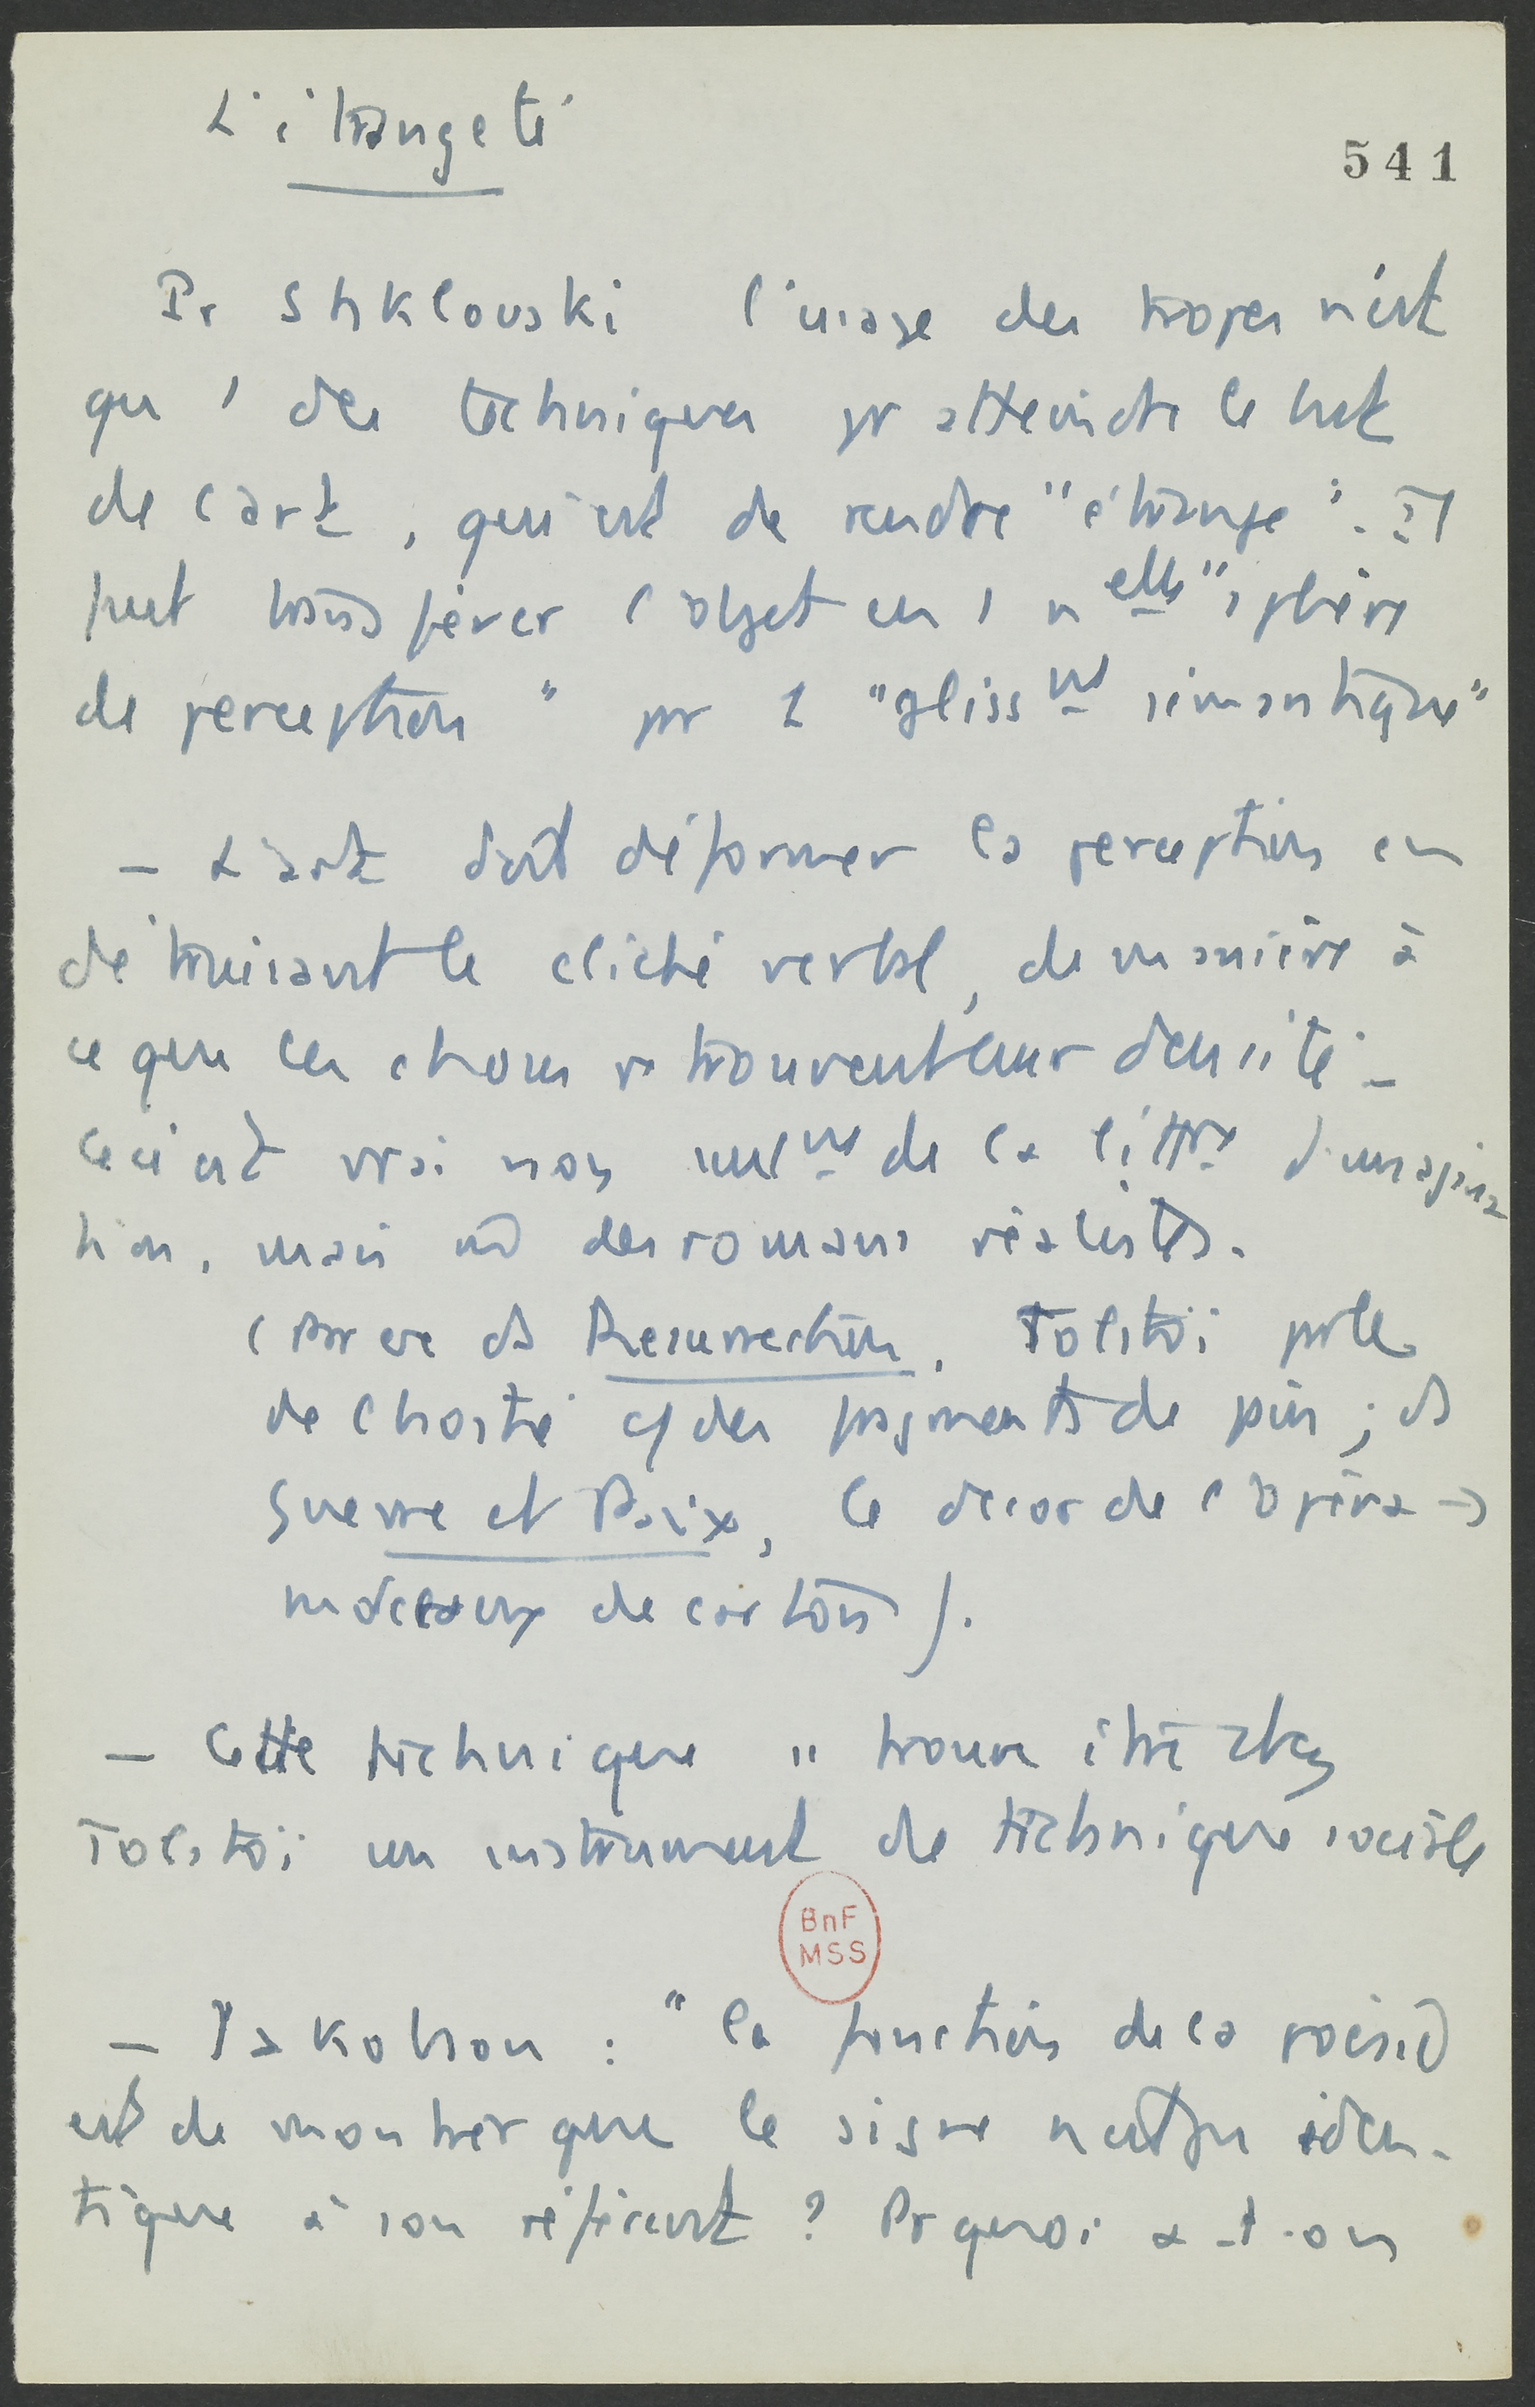 L'étrangeté
541
Pr Shklovski l'usage des tropes n'est
qu'1 des techniques pr atteindre le but
de l'art, qui est de rendre "étrange". Il
faut transférer l'objet en 1 nelle "sphère
de perception" par 1 "glissnt sémantique"
– L'art doit déformer la perception en
détruisant le cliché verbal, de manière à
ce que les choses retrouvent leur densité –
Ceci est vrai non seulnt de la littre d'imagina
tion, mais des romans réalistes.
( ds Resurrection, Tolstoï parle
de l'hostie c/ des fragments de pain ; ds
Guerre et Paix, le décor de l'opéra →
morceaux de carton).
– Cette technique se trouve être chez
Tolstoï un instrument de technique sociale
BnF
MSS
– Jakobson : "la fonction de la poésie
est de montrer que le signe n'est pas iden-
tique à son référent ? Pr quoi a-t-on